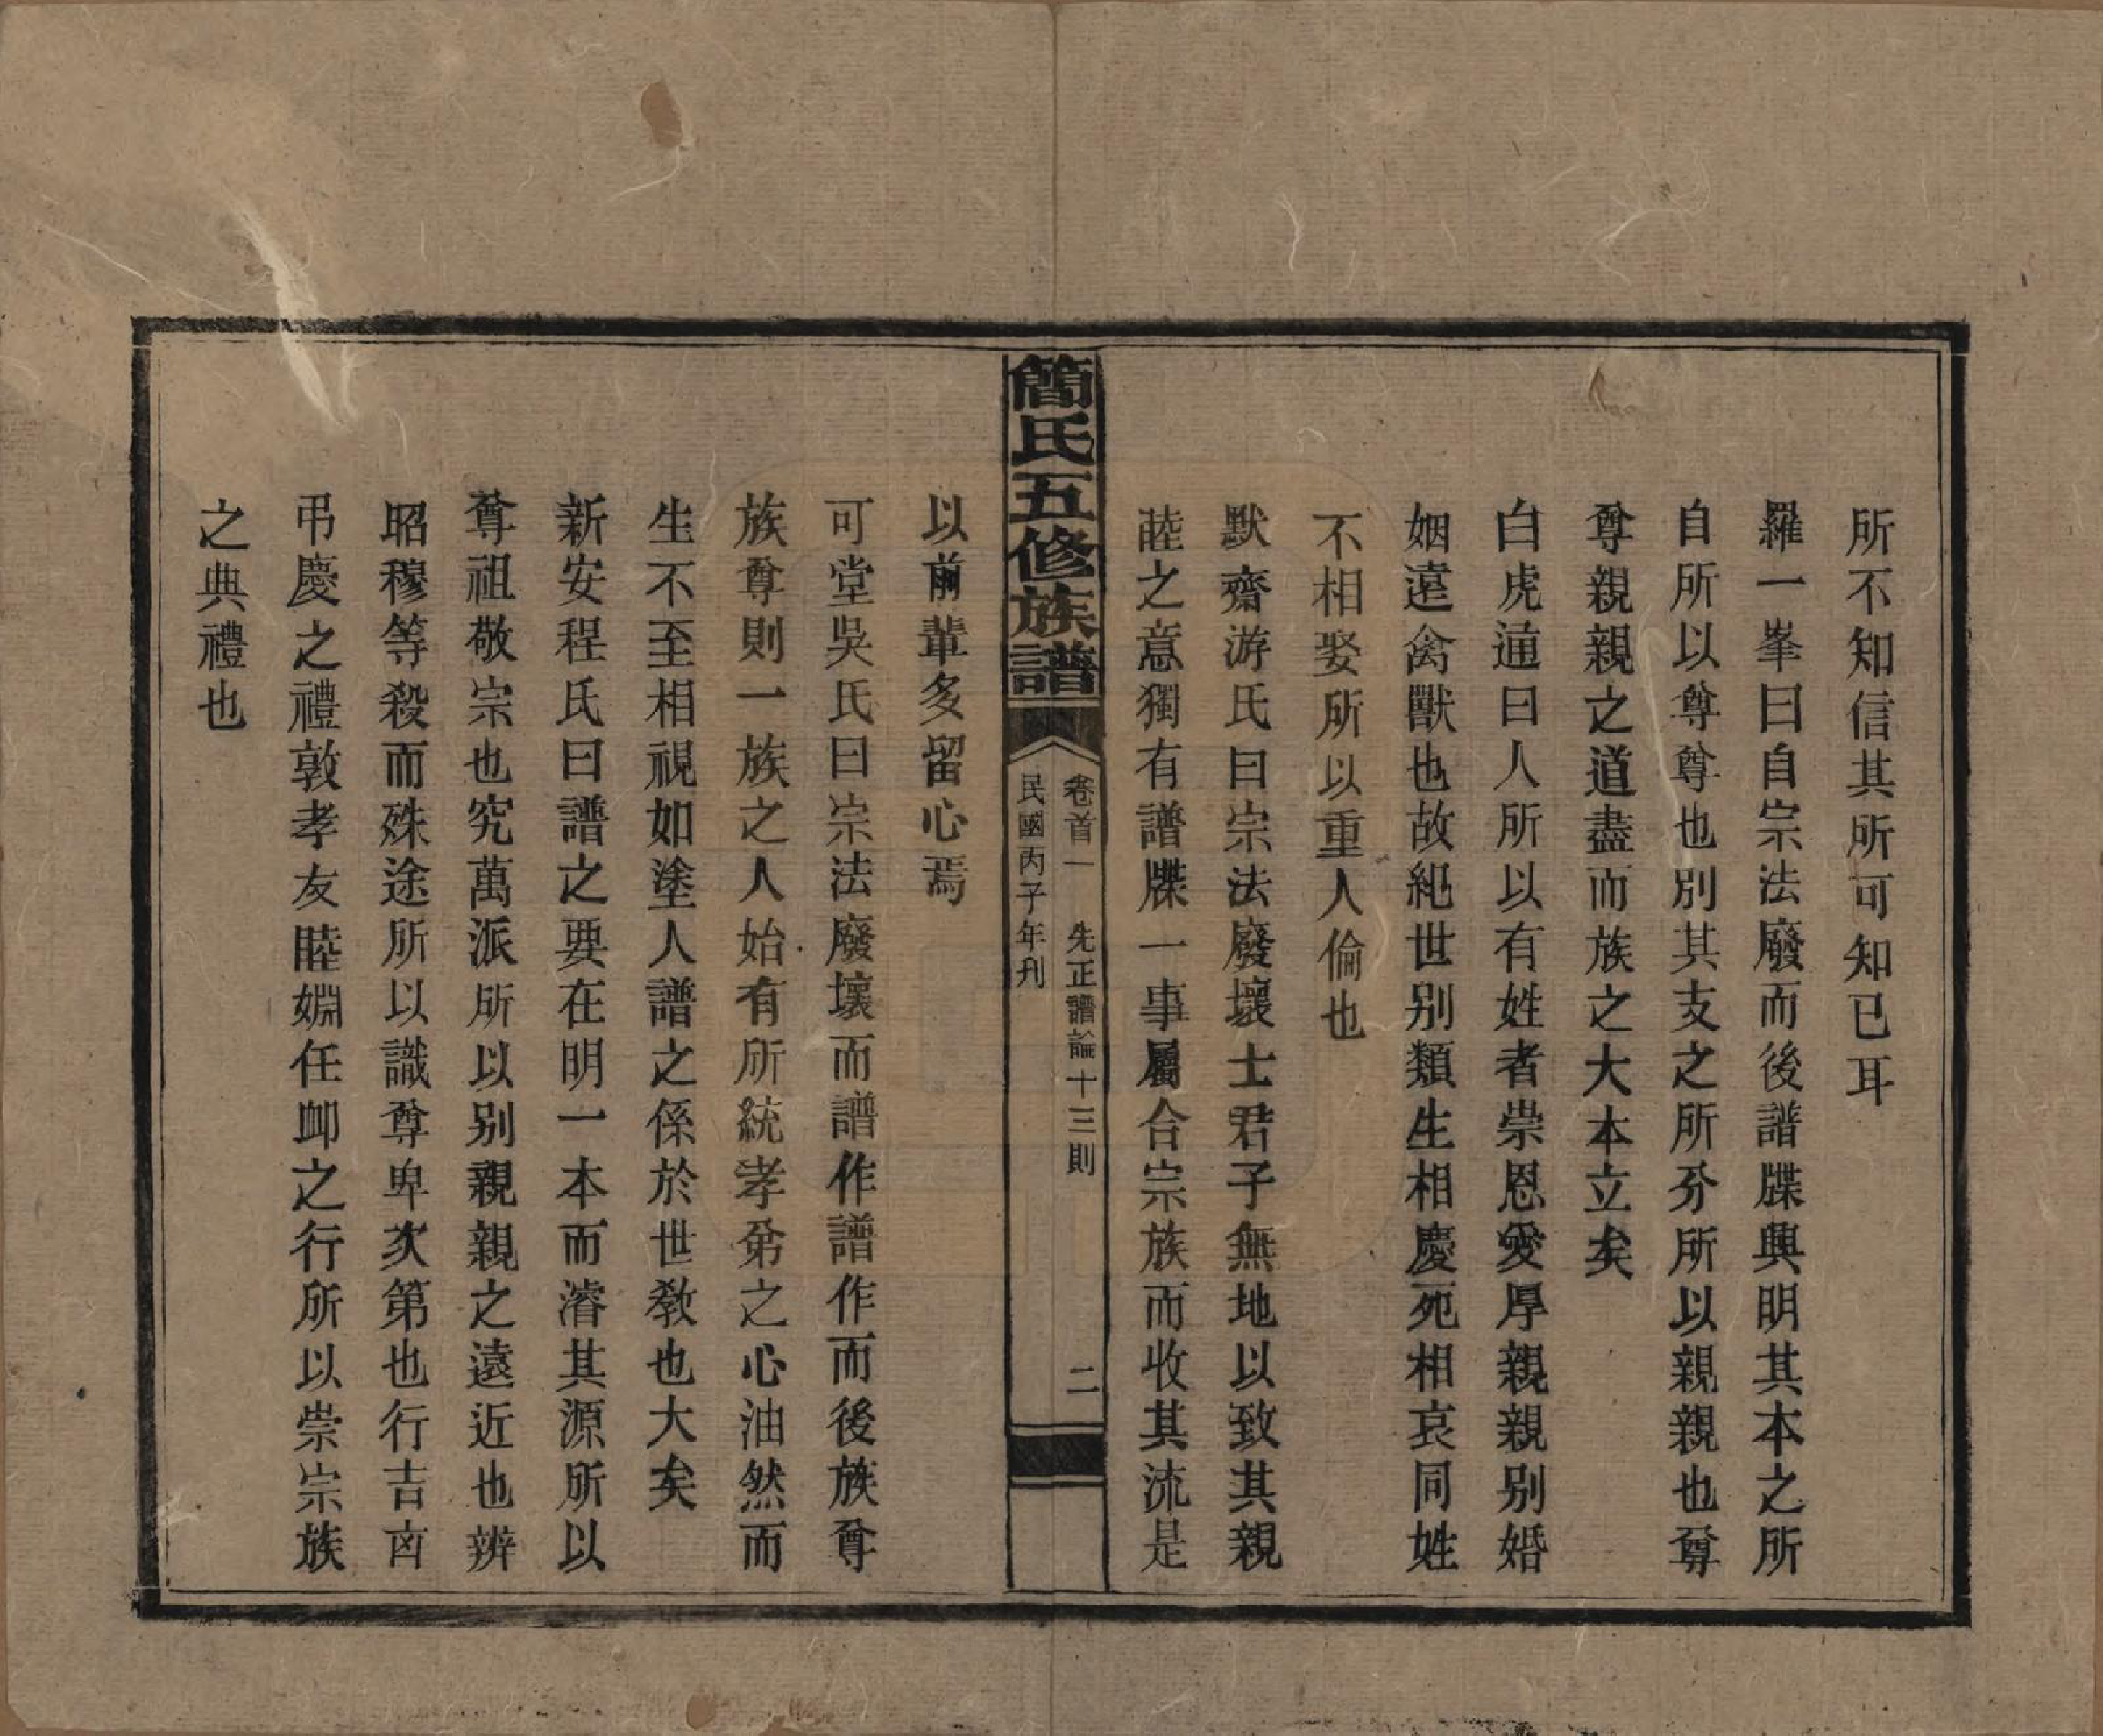 所不知信其所可知已耳
羅一峯曰自宗法廢而後譜牒興明其本之所
自所以尊尊也別其支之所分所以親親也尊
尊親親之道盡而族之大本立矣
白虎通曰人所以有姓者崇恩愛厚親親別婚
姻遠禽獸也故紀世別類生相慶死相哀同姓
不相娶所以重人倫也
默齋游氏曰宗法廢壞士君子無地以致其親
睦之意獨有譜牒一事屬合宗族而收其流是
簡氏五修族譜
卷首一 先正譜論十三則 二
民國丙子年刋
以前輩多留心焉
可堂吳氏曰宗法廢壞而譜作譜作而後族尊
族尊則一族之人始有所統孝弟之心油然而
生不至相視如塗人譜之係於世敎也大矣
新安程氏曰譜之要在明一本而濬其源所以
尊祖敬宗也究萬派所以別親親之遠近也辨
昭穆等殺而殊途所以識尊卑次第也行吉凶
弔慶之禮敦孝友睦婣任卹之行所以崇宗族
之典禮也